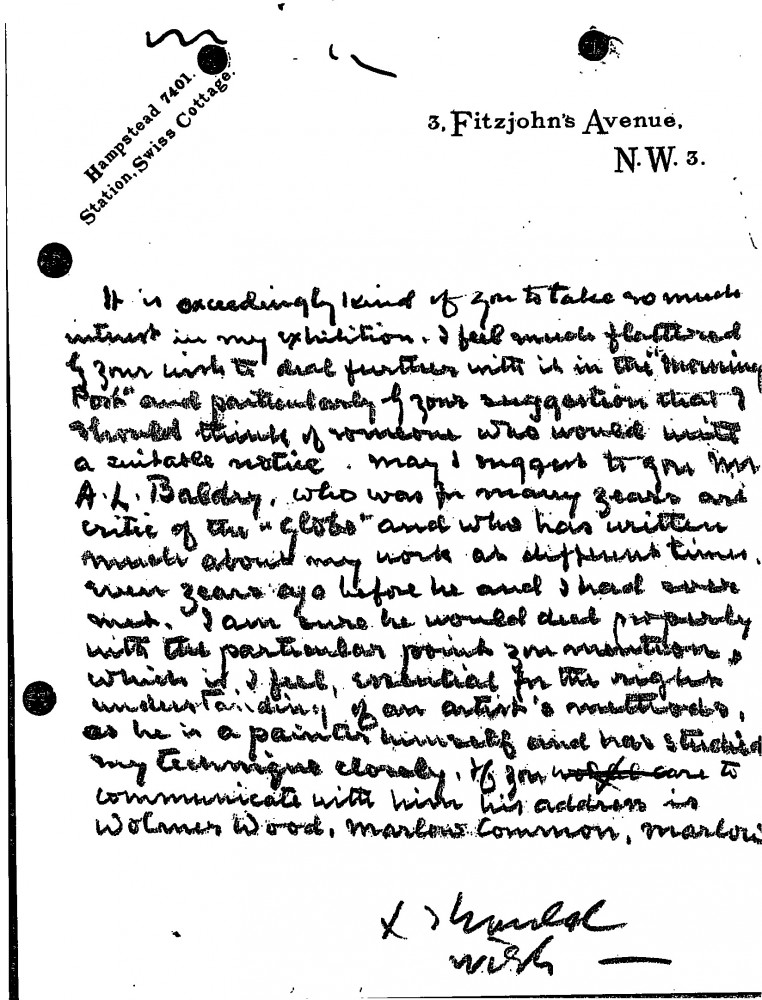 Hampstead 7401.
Station, Swiss Cottage.
3, Fitzjohn's Avenue,
N.W. 3.
It is exceedingly kind of you to take so much
interest in my exhibition. I feel much flattered
by your wish to deal further with it in the "Morning
Post" and particularly by your suggestion that I
should think of someone who would write
a suitable notice. May I suggest to you Mr
A. L. Baldry, who was for many years art
critic of the "Globe" and who has written
much about my work at different times,
even years ago before he and I had ever
met. I am sure he would deal properly
with the particular point you mention,
which is, I feel, essential for the right
understanding of an artist's methods,
as he is a painter himself and has studied
my technique closely. If you care to
communicate with him his address is
Wolmer Wood, Marlow Common, Marlow
x should
wish —